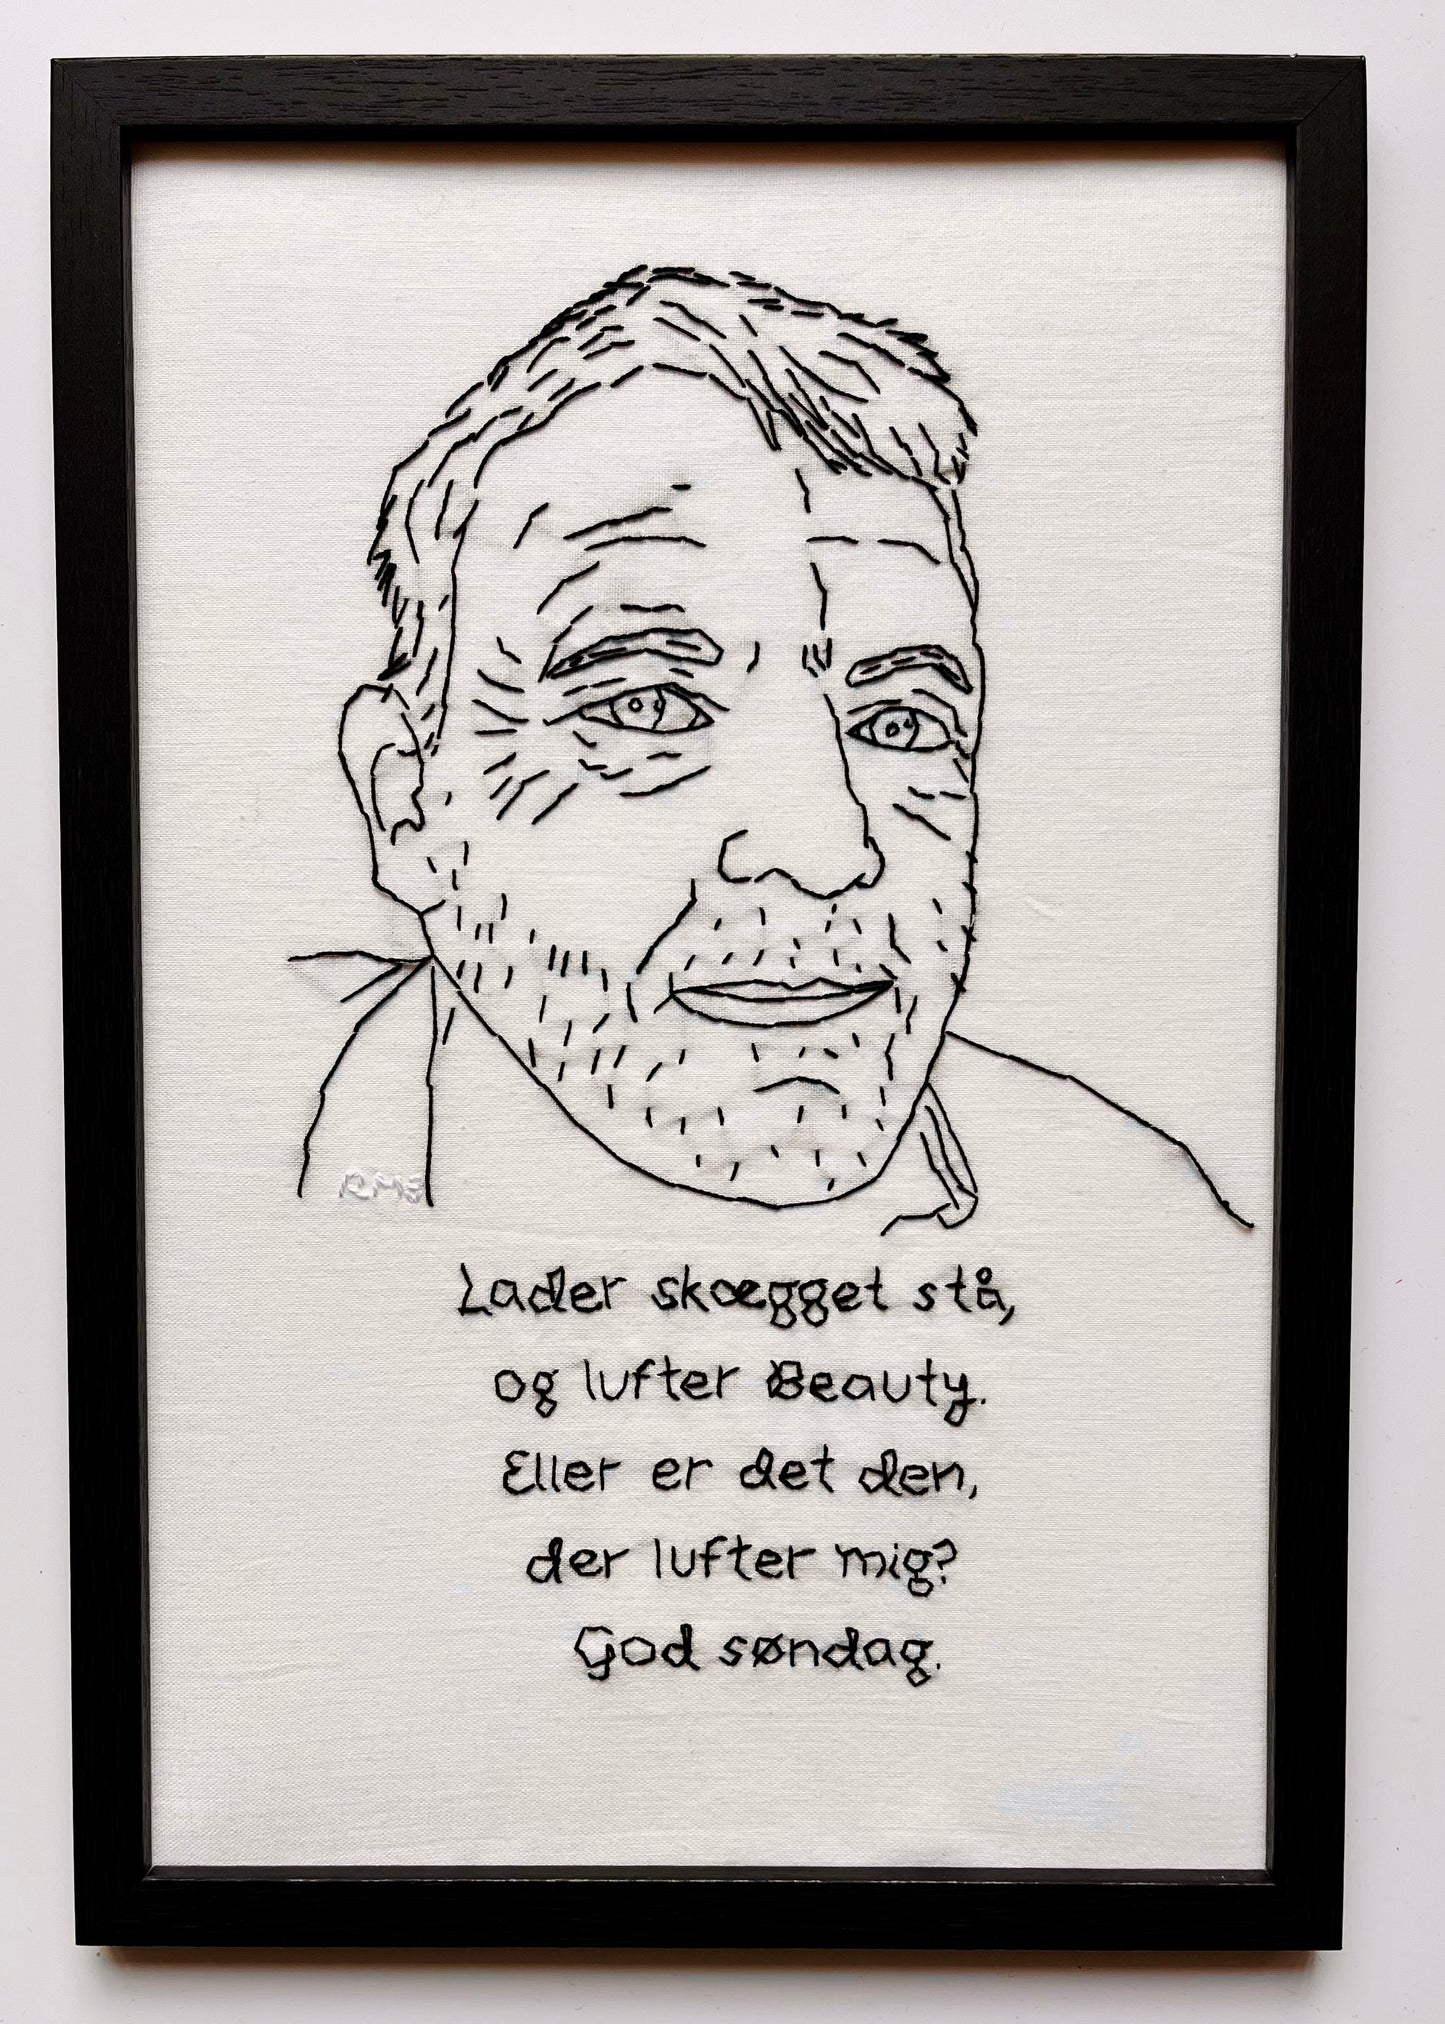 RMS
Lader skægget stå,
og lufter Beauty.
Eller er det den,
der lufter mig?
God søndag.